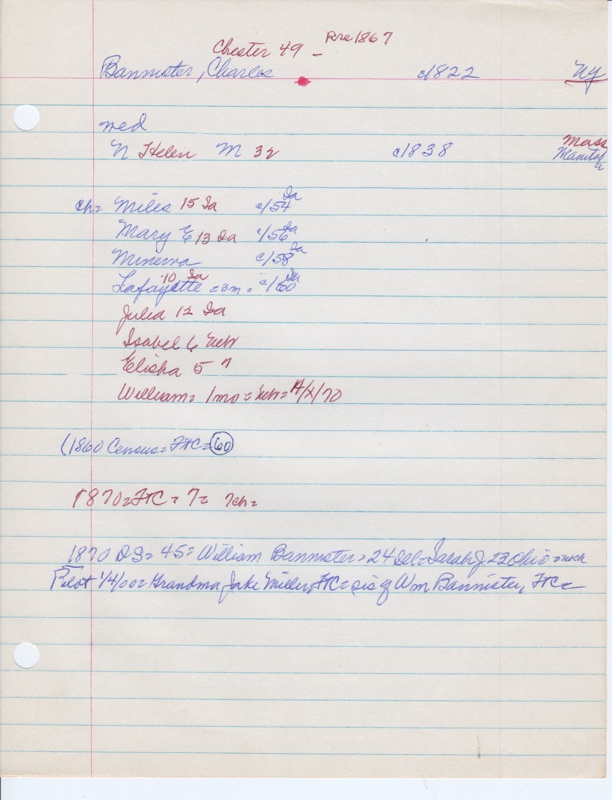 Chester 49 - Pre 1867
Bannister, Charles c/1822 Ny
med
N Helen M 32 c/1838 Mass
ch= Miles 15 Ia c/54 Ia
Mary E 13 Ia c/56 Ia
Minerva c/58 Ia
Lafayette 10 Ia =3m= c/60 Ia
Julia 12 Ia
Isabel 6 Neb
Elisha 5 "
William= 1mo = Neb=
(1860 Census= FtC= 60
1870=FtC=7= Neb=
1870 DS= 45= William Bannister= 24 Ill= Sarah J= 22 Ohio =
Pilot 1/4/00= Grandma Jake Miller, FtC= sis of Wm Bannister, FtC=